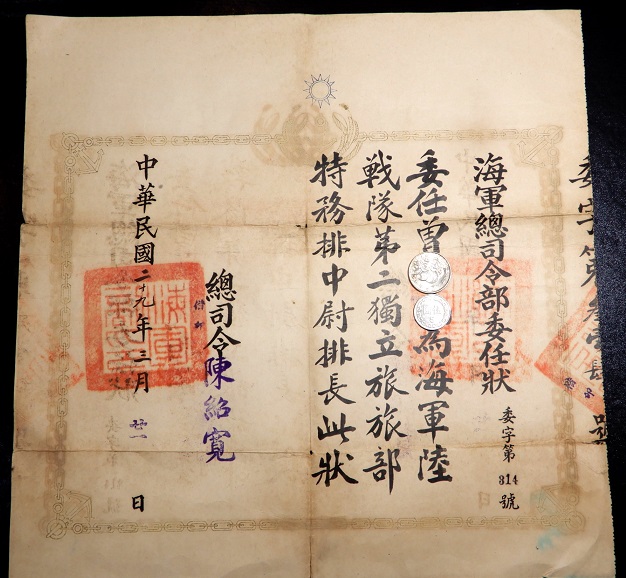 委字第叁壹肆號
海軍總司令部委任狀
委字第314號
委任曾 為海軍陸
戰隊第二獨立旅旅部
特務排中尉排長此狀
總司令陳紹寬
中華民國二十九年三月廿一日